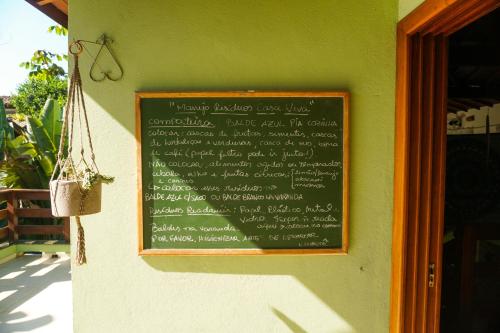 "Manejo Resíduos Casa Viva"
composteira BALDE AZUL PIA COZINHA
colocar: cascas de frutas, sementes, cascas
de hortaliças e verduras, casca de ovo, borra
de café (papel filtro pode ir junto!)
NÃO COLOCAR: alimentos cozidos ou temperados
cebola, alho e frutas cítricas limão/laranja
e carnes abacaxi
colocar esses resíduos
BALDE AZUL C/SACO OU BALDE BRANCO NA VARANDA
Resíduos Recicláveis: Papel, Plástico, Metal
Vidro
Baldes na varanda
POR FAVOR, HIGIENIZAR ANTES DE DESCARTAR